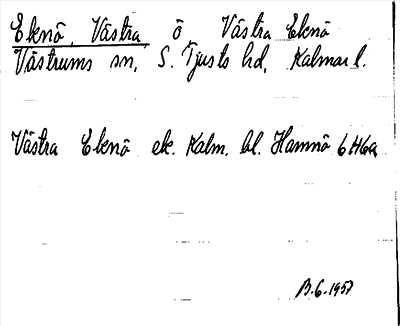 Ekenö, Västra ö Västra Ekenö
Västrums sn, S. Tjusts hd, Kalmar l.
Västra Ekenö ek. Kalm. bl. Hamnö 6H6a
B.6.1957